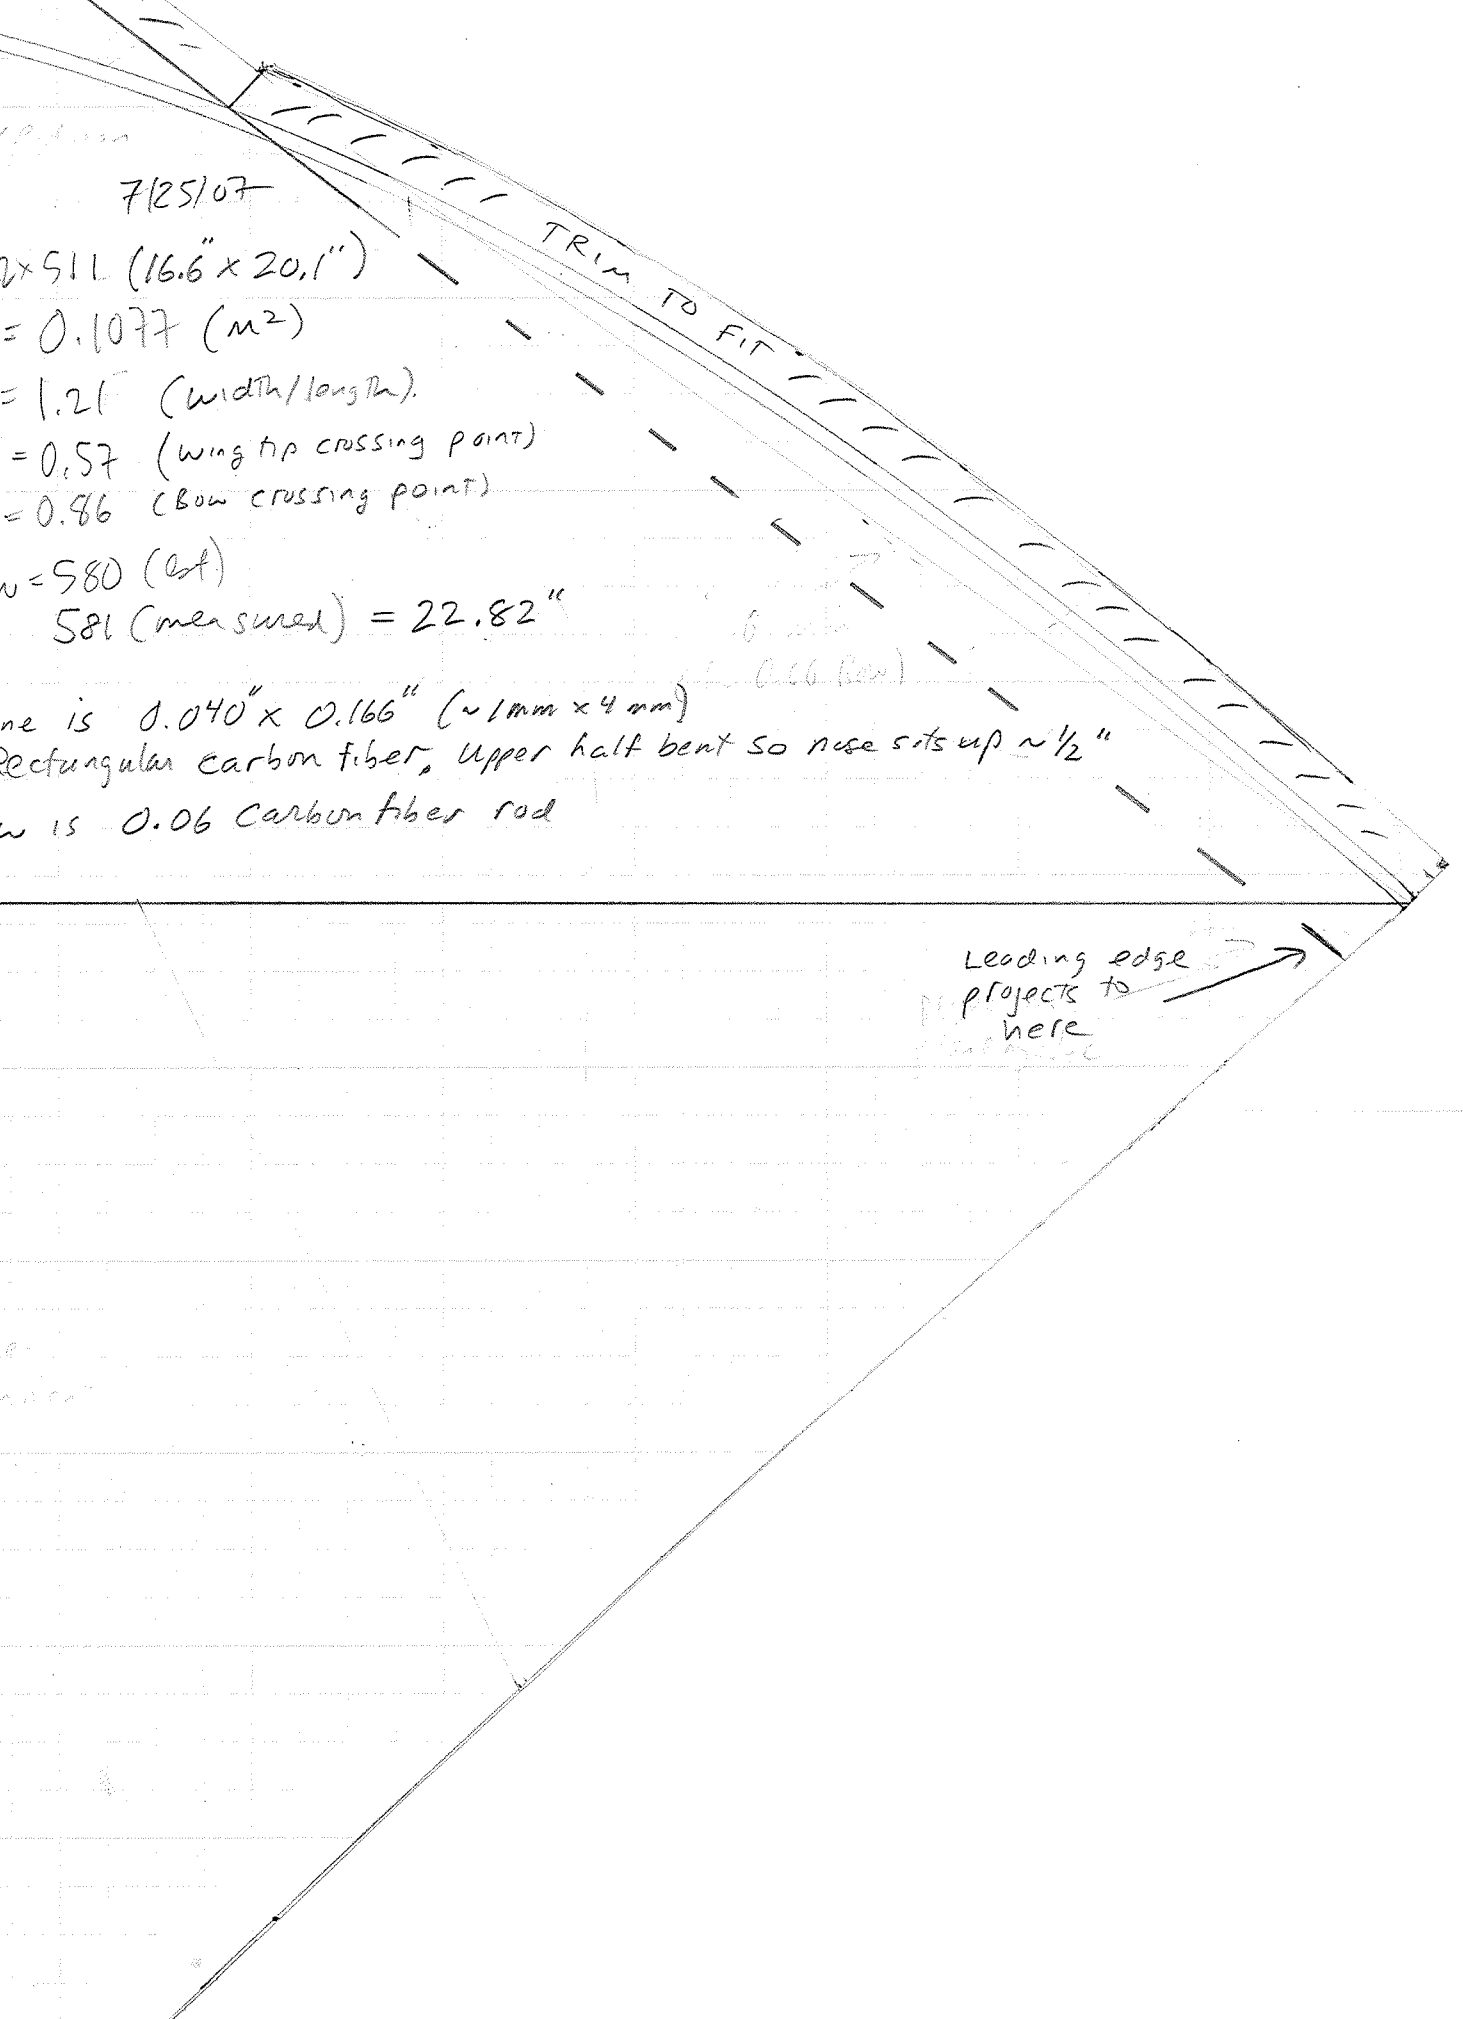 7/25/07
2x511 (16.6" x 20.1")
= 0.1077 (m²)
= 1.21 (width/length).
= 0.57 (wing tip crossing point)
= 0.86 (Bow crossing point)
w = 580 (est)
581 (measured) = 22.82"
ne is 0.040" x 0.166" (~1mm x 4mm)
Rectungular carbon fiber, upper half bent so nose sits up ~ 1/2"
w is 0.06 Carbon fiber rod
TRIM TO FIT
Leading edge
projects to
here